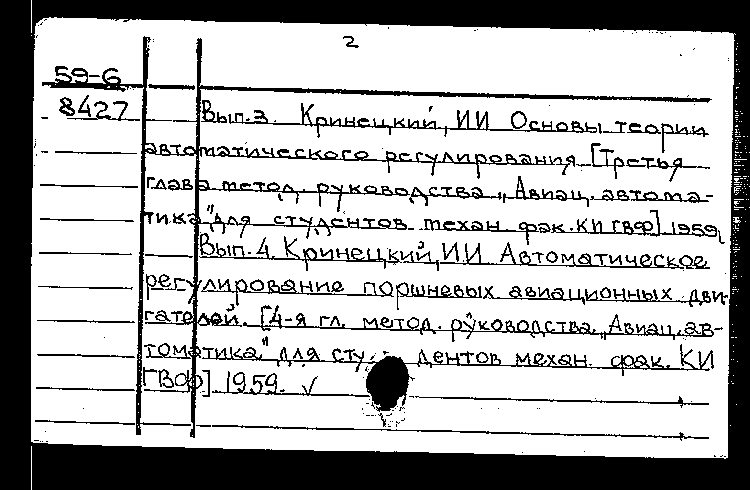 2
59-6
8427 Вып.3. Кринецкий, ИИ Основы теории
автоматического регулирования [Третья
глава метод. руководства „Авиац. автома-
тика" для студентов механ фак. КИ ГВФ] 1959.
Вып. 4. Кринецкий, ИИ Автоматическое
регулирование поршневых авиационных дви-
гателей. [4-я гл. метод. руководства „Авиац. ав-
томатика" для студентов механ. фак. КИ
ГВФ] 1959. √